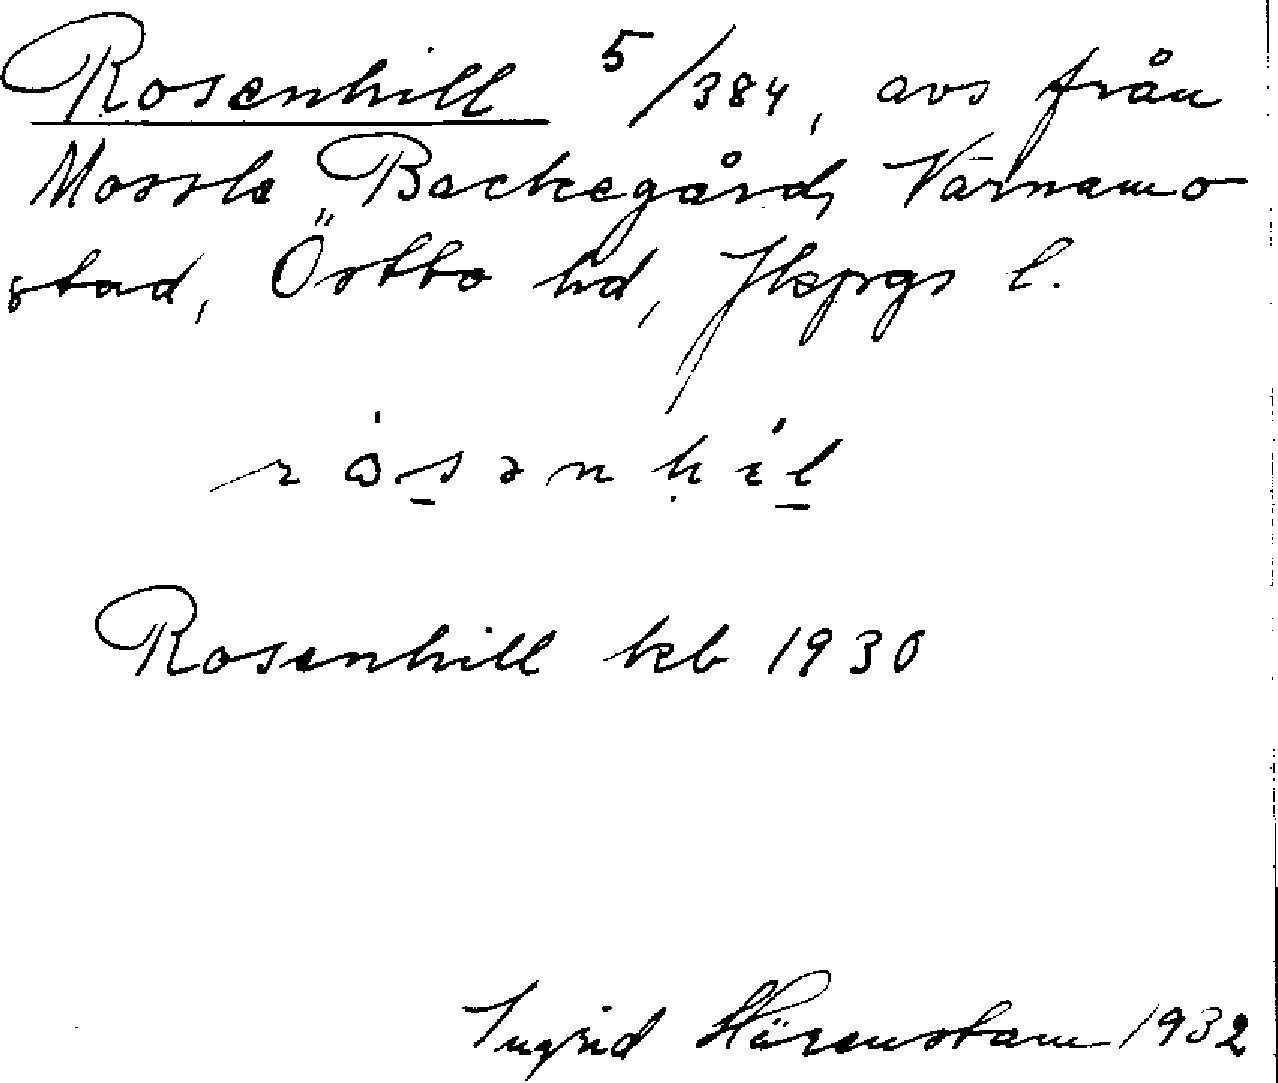 Rosenhill 5/384, avs från
Mossle Backegård, Värnamo
stad, Östbo hd, Jkpgs l.
rósənhìl
Rosenhill kb 1930
Ingrid Härenstam 1932